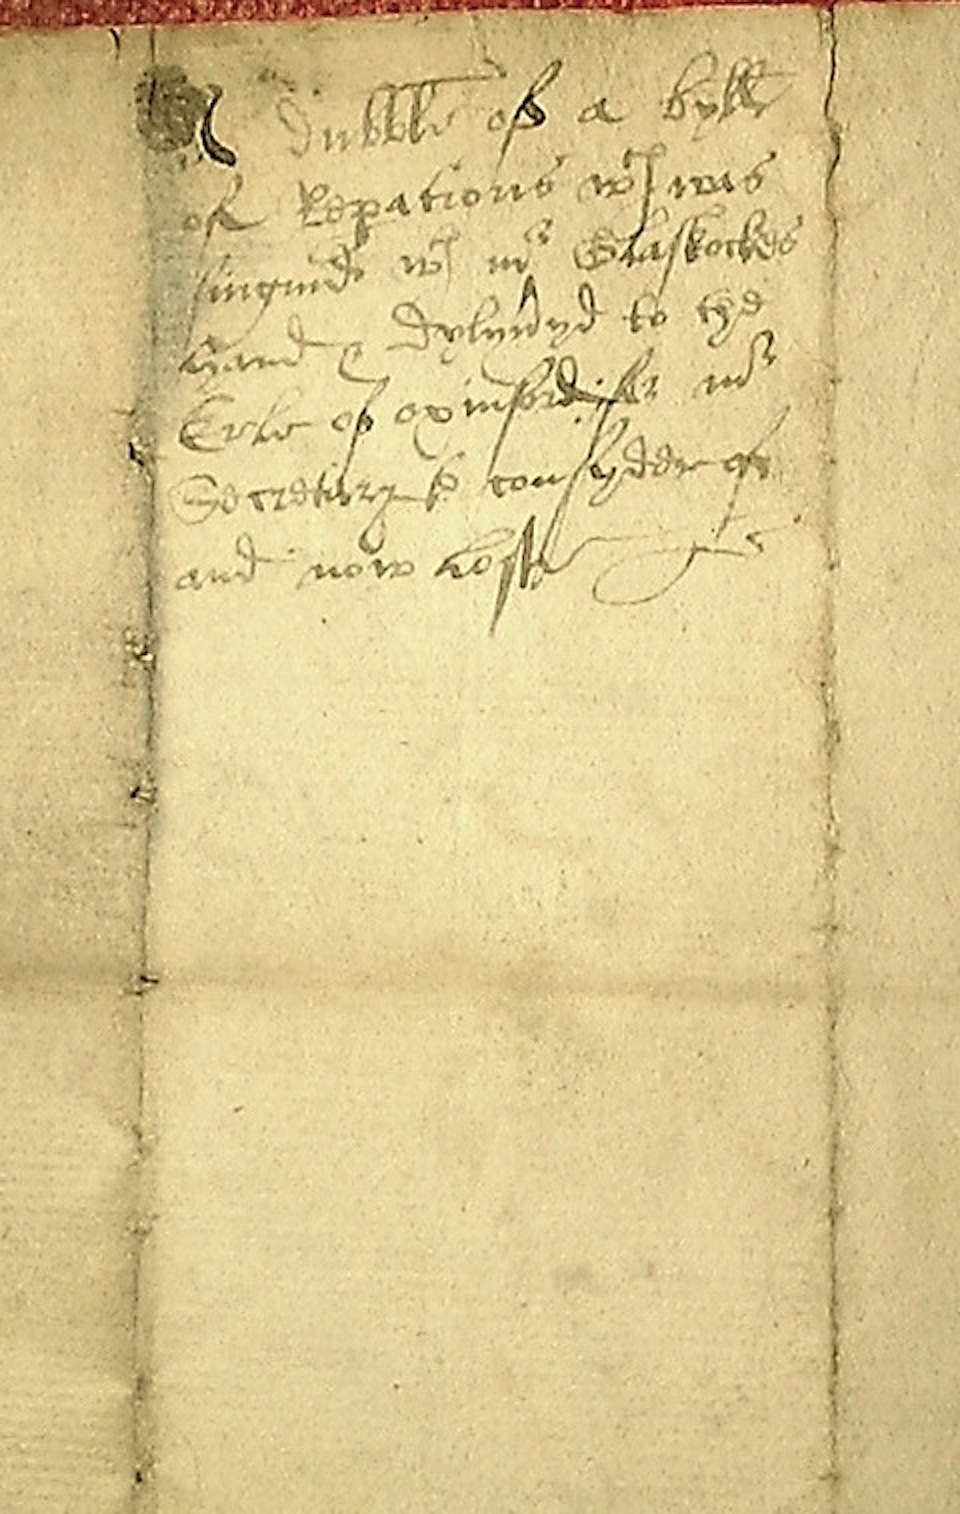 A dubble of a byll
of Repations wch was
singnd wt mr Glaskockes
hand & dylyvryd to the
Erle of oxinford for mr
Secretary to consydder of
and now lost